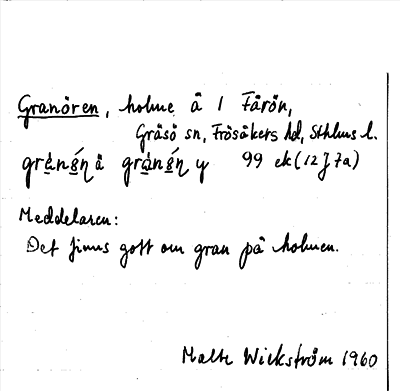 Granören, holme å 1 Färön,
Gräsö sn, Frösåkers hd, Sthlms l.
99 ek (12J7a)
Meddelaren:
Det finns gott om gran på holmen.
Malte Wickström 1960